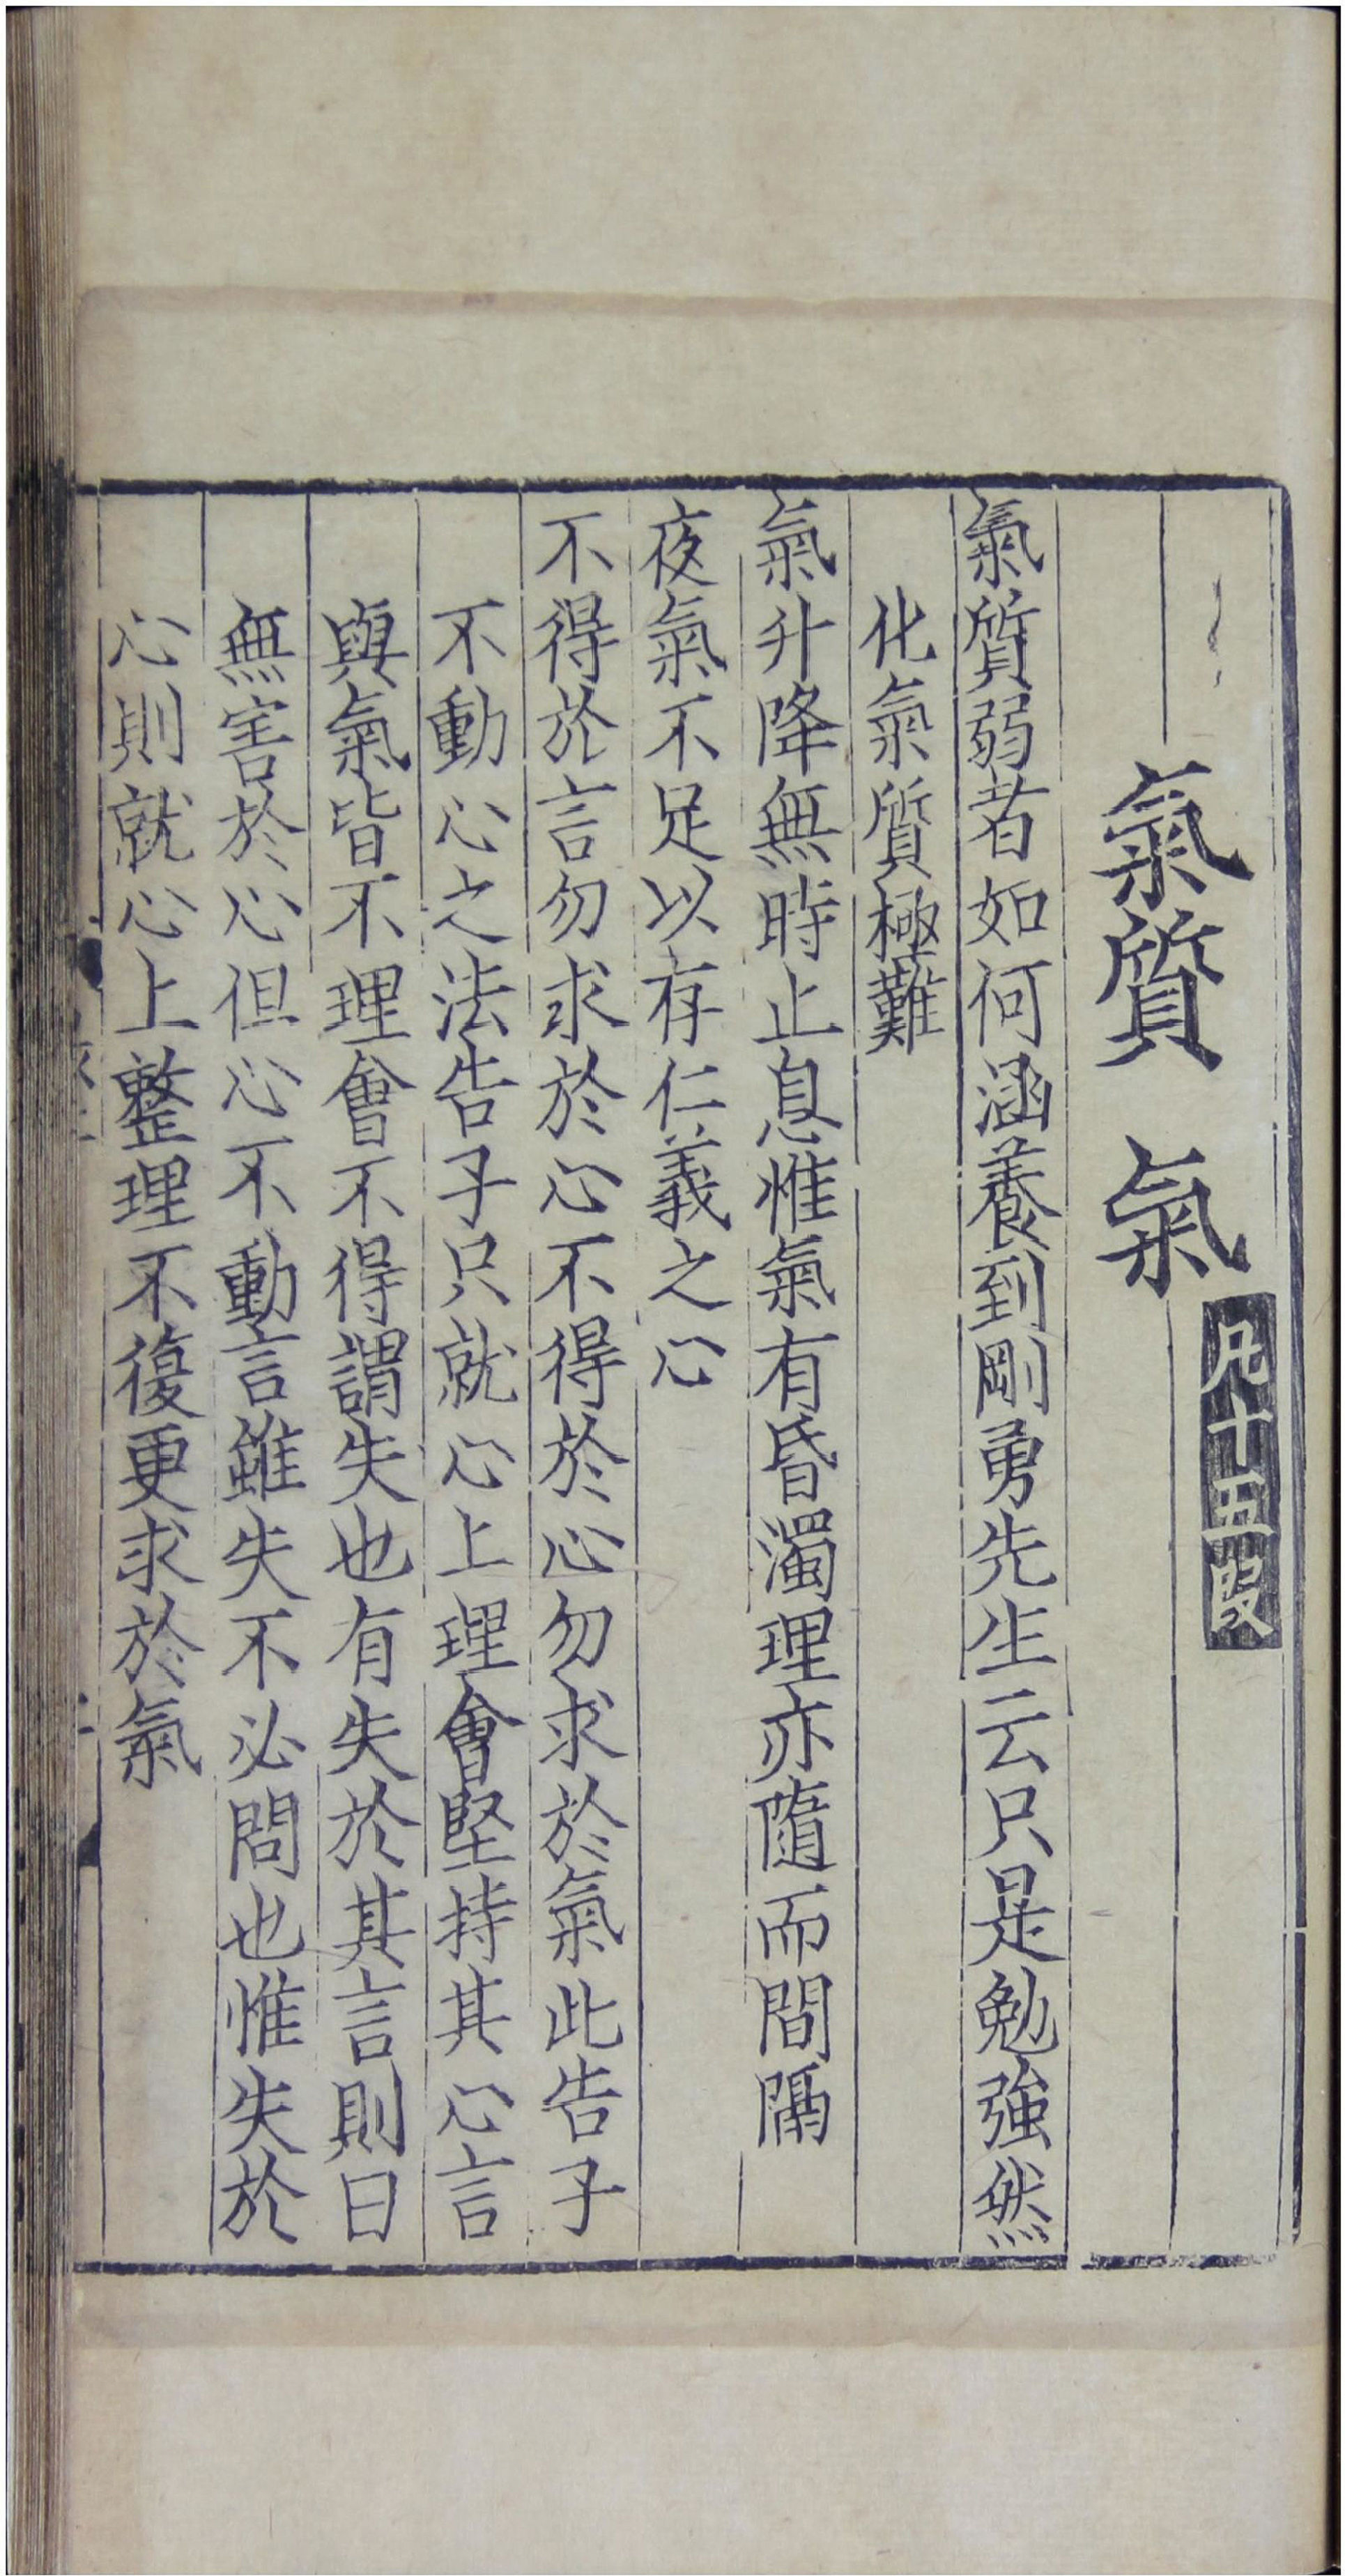 氣質 氣
凡十五段
氣質弱者如何涵養到剛勇先生云只是勉強然
化氣質極難
氣升降無時止息惟氣有昏濁理亦隨而間隔
夜氣不足以存仁義之心
不得於言勿求於心不得於心勿求於氣此告子
不動心之法告子只就心上理會堅持其心言
與氣皆不理會不得謂失也有失於其言則曰
無害於心但心不動言雖失不必問也惟失於
心則就心上整理不復更求於氣